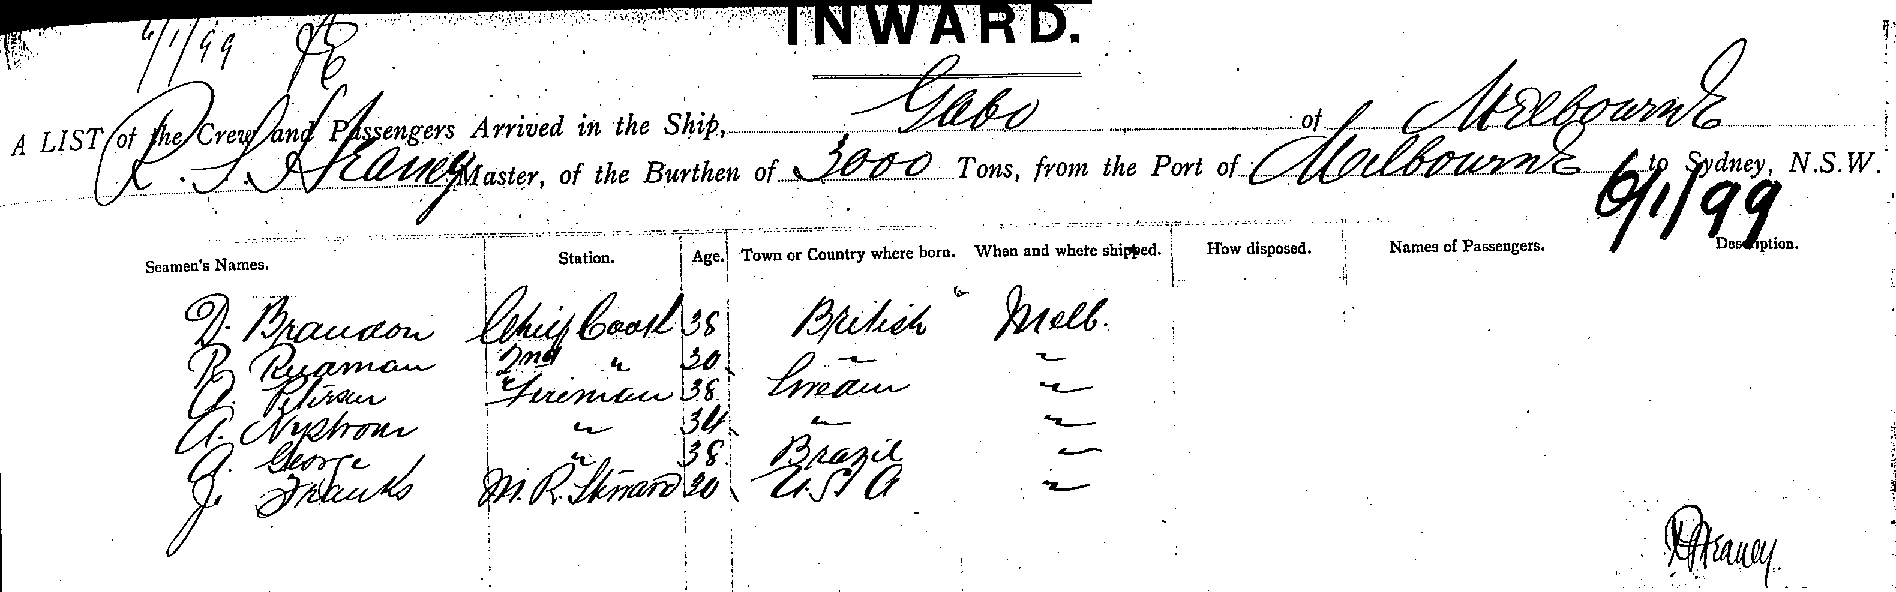 INWARD.
6/1/99
A LIST of the Crew and Passengers Arrived in the Ship, Gabo of Melbourne
R. S. Heaney Master, of the Burthen of 3000 Tons, from the Port of Melbourne to Sydney, N.S.W.
6/1/99
Seamen's Names. Station. Age. Town or Country where born. When and where shipped. How disposed. Names of Passengers. Description.
D. Brandon Chief Cook 38 British Melb.
R. 2nd " 30 " "
A. Petersen Fireman 38 Sweden "
A. Nystrom " 34 " "
A. George " 38 Brazil "
J. Franks M. R. Steward 30 U.S.A "
R S Heaney